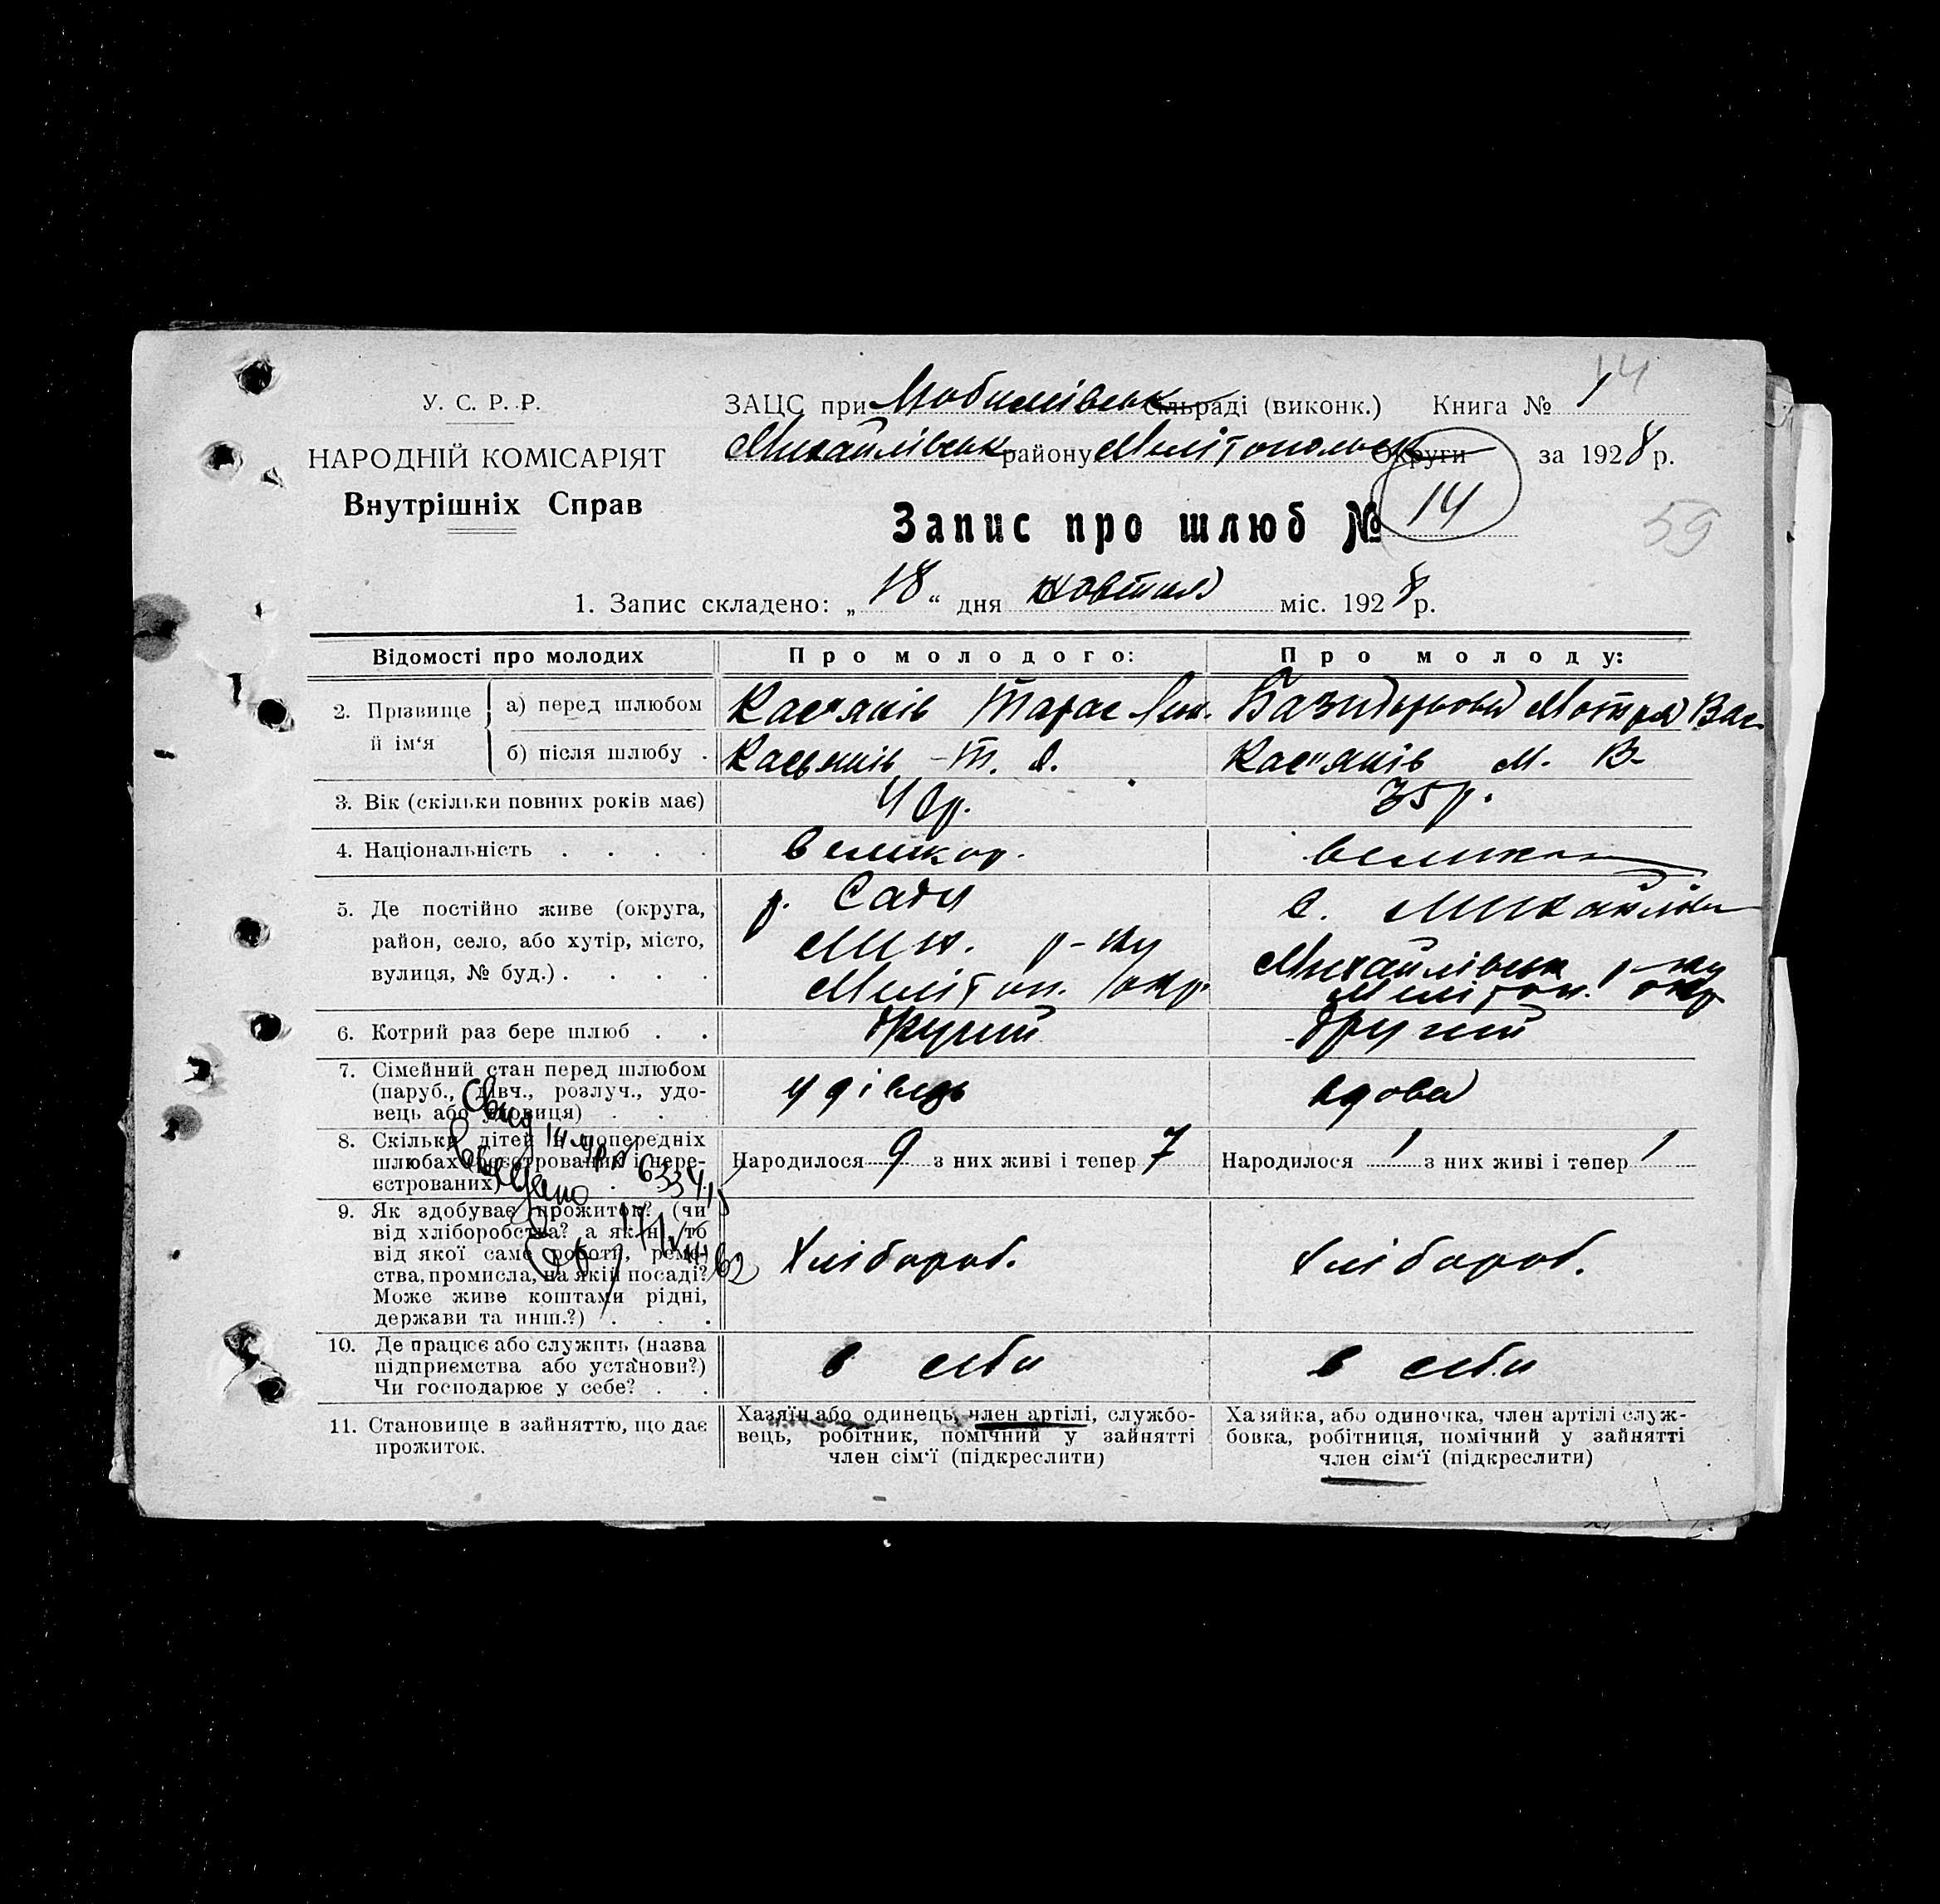 14
У. С. Р. Р.
НАРОДНІЙ КОМІСАРІЯТ
Внутрішніх Справ
ЗАЦС при сільраді (виконк.) Книга № 1
Михайлівськ району Мелітопольськ Округи за 1928 р.
Запис про шлюб № 14
59
1. Запис складено: „ 18 “ дня жовтня міс. 1928 р.
Відомості про молодих
Про молодого:
Про молоду:
2. Прізвище й ім‘я
а) перед шлюбом
Кас'янів Тарас
Мотря Вас.
б) після шлюбу .
Касьянів Т.
Кас"янів М. В.
3. Вік (скільки повних років має)
35 р.
4. Національність . . . .
великор.
5. Де постійно живе (округа,
район, село, або хутір, місто,
вулиця, № буд.) . . . .
Мих. р-ну
Мелітоп. окр.
с. Михайлівка
Михайлівськ р-ну
Мелітоп. окр.
6. Котрий раз бере шлюб . .
другий
другий
7. Сімейний стан перед шлюбом
(паруб., дівч., розлуч., удо-
вець або удовиця) . . .
удівець
вдова
8. Скільки дітей в попередніх
шлюбах (реєстрованих і нере-
єстрованих) . . .
Народилося 9 з них живі і тепер 7
Народилося 1 з них живі і тепер 1
9. Як здобуває прожиток? (чи
від хліборобства? а як ні, то
від якої саме роботи, реме-
ства, промисла, на якій посаді?
Може живе коштами рідні,
держави та инш.?) . . .
Хлібороб.
Хлібороб.
10. Де працює або служить (назва
підприємства або установи?)
Чи господарює у себе? . .
в себи
в себи
11. Становище в зайняттю, що дає
прожиток.
Хазяїн або одинець, член артілі, службо-
вець, робітник, помічний у зайнятті
член сім‘ї (підкреслити)
Хазяйка, або одиночка, член артілі служ-
бовка, робітниця, помічний у зайнятті
член сім‘ї (підкреслити)